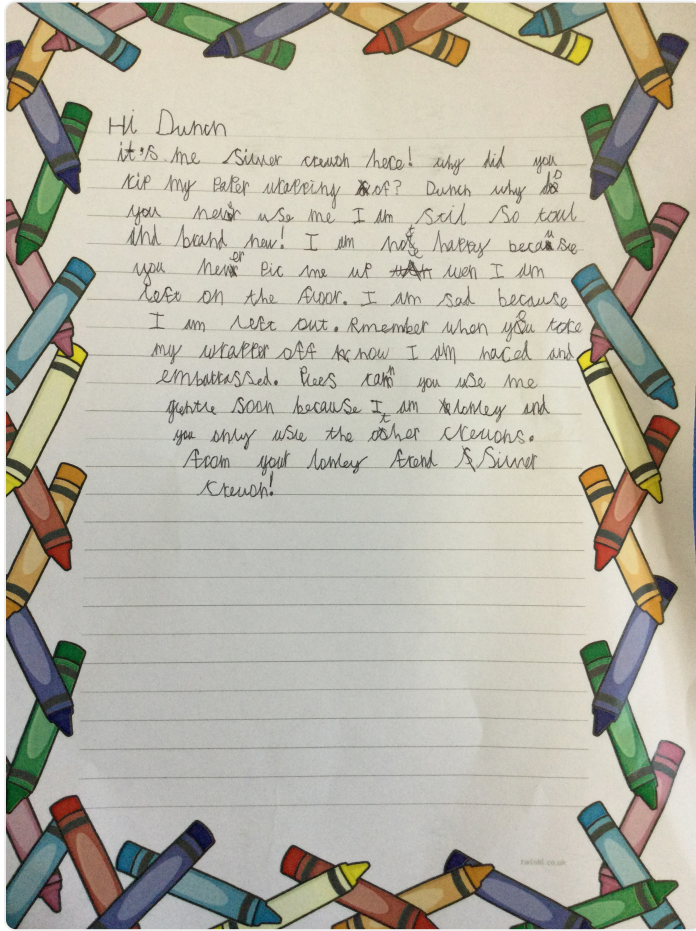 Hi Dunch
it's me Silver creuoh here! why did you
rip my paper wrapping of? Dunch why do
you never use me I am stil so toul
and brand new! I am note happy because
you never pic me up wen I am
left on the floor. I am sad because
I am left out. Rmember when you toke
my wrapper off know I am naced and
embarrassed. Plees can you use me
gentle soon because I am lonley and
you only use the other creuons.
from your lonley frend Silver
Creuoh!
twinkl.co.uk